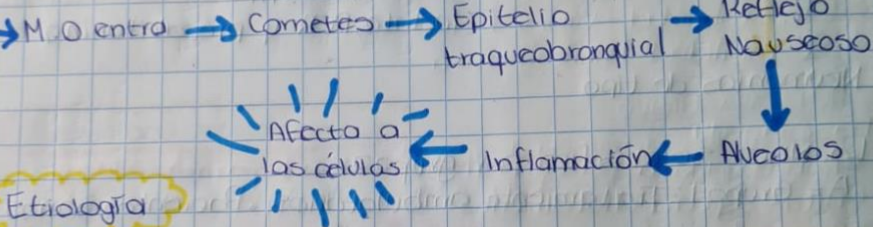 → M.O entra → Cometes → Epitelio
traqueobronquial → Reflejo
Nauseoso
Alveolos
← Inflamación ←
Afecta a
las células
Etiología